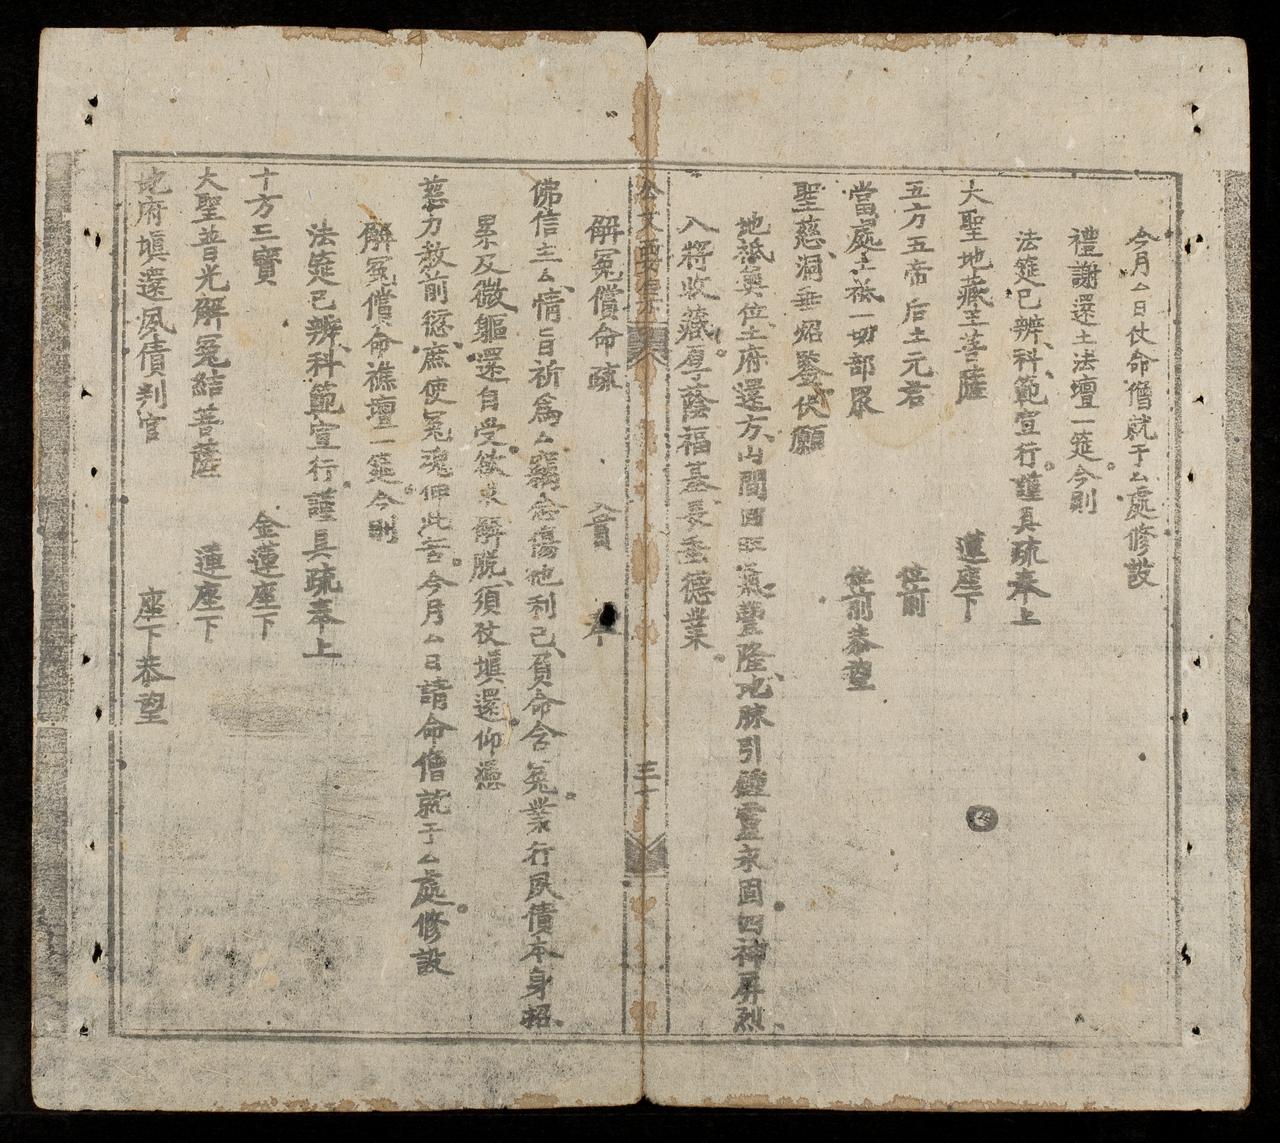 今月厶日仗命僧就于厶處修設
禮謝還土法壇一筵今則
法筵已辨科範宣行謹具疏奉上
大聖地藏王菩薩 蓮座下
五方五帝后土元君 位前
當處土祇一切部眾 位前恭望
聖慈洞垂炤鑒伏願
地祇奠位土府還方山間四旺氣豐隆地脉引鍾靈永固四神屏烈
八將收藏厚蔭福基長垂德業
公文 三十
解冤償命疏 奉
佛信主厶情旨祈為厶竊念傷他利己負命含冤業行夙債本身招
累及微軀還自受欲求解脫須仗填還仰憑
慈力赦前愆庶使冤魂伸此苦今月厶日請命僧就于厶處修設
解冤償命禳壇一筵今則
法筵已辨科範宣行謹具疏奉上
十方三寶 金蓮座下
大聖普光解冤結菩薩 蓮座下
地府填還夙債判官 座下恭望